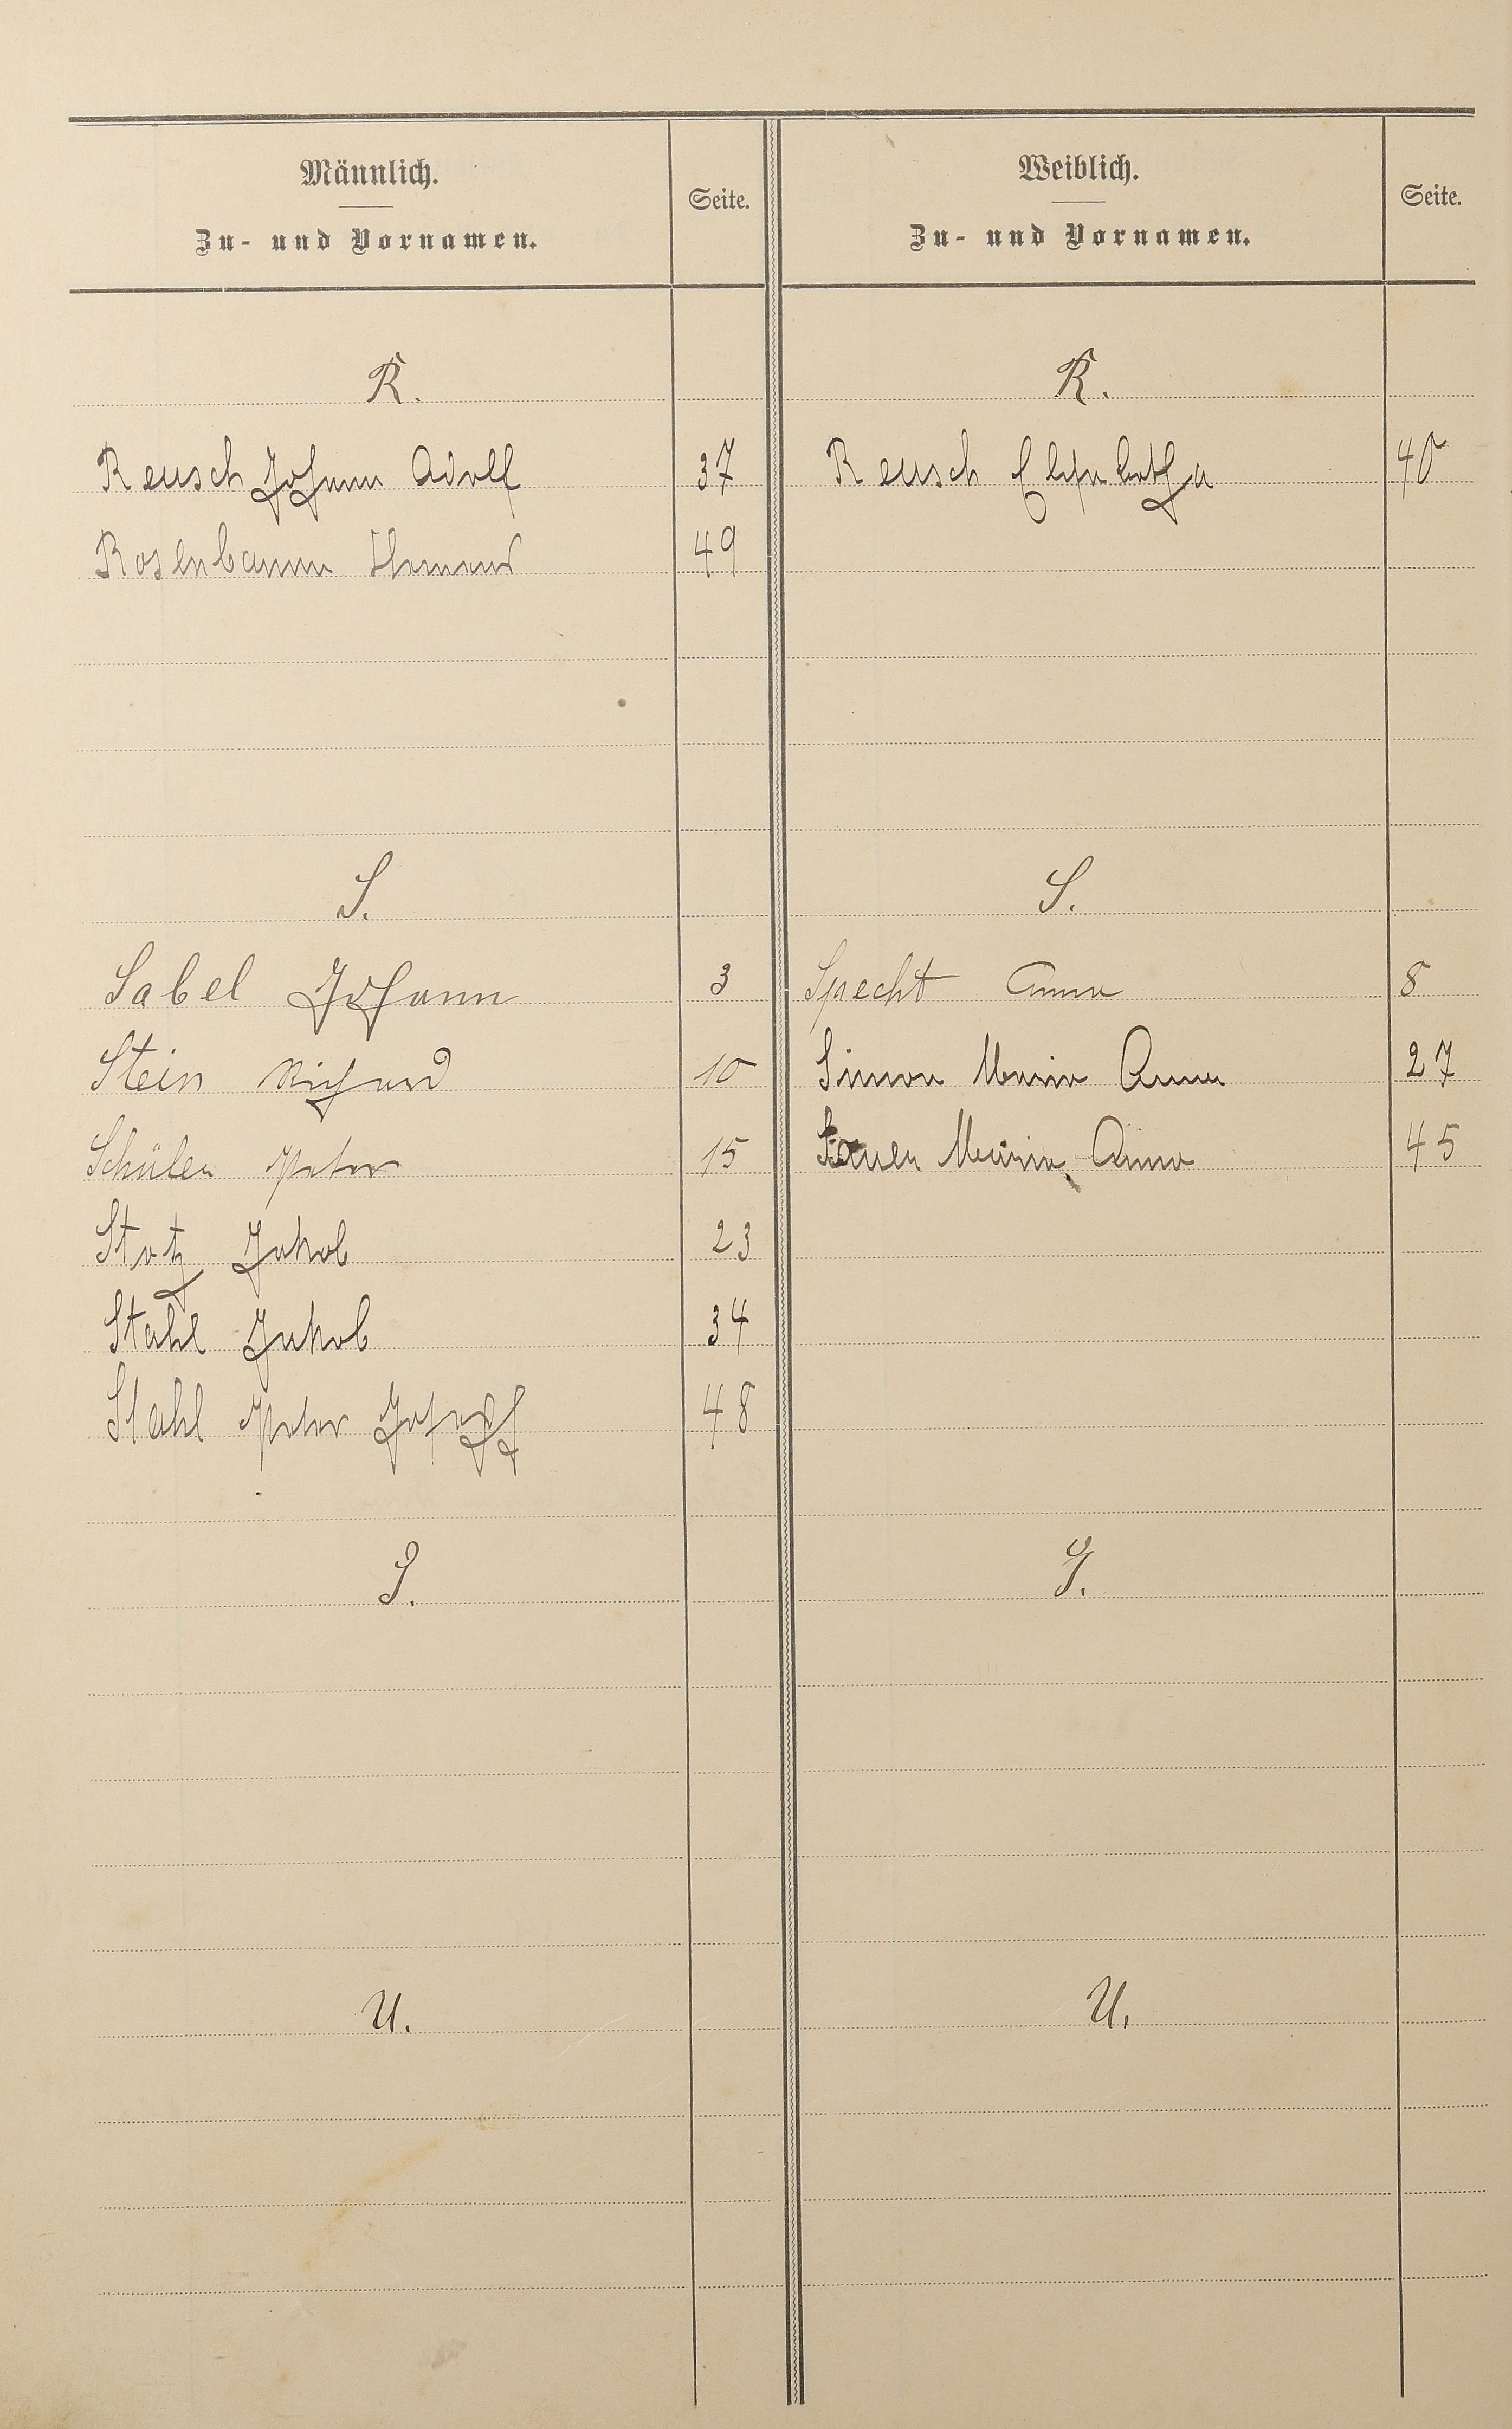 Männlich.
Zu- und Vornamen.
Seite.
R.
Reusch Johann Adolf 37
Rosenbaum 49
S.
Sabel Johann 3
Stein Richard 10
Schüler Peter 15
Stotz Jakob 23
Stahl Jakob 34
Stahl Peter Joseph 48
T.
U.
Weiblich.
Zu- und Vornamen.
Seite.
R.
Reusch Elisabetha 40
S.
Specht Anna 8
Simon Maria Anna 27
Maria Anna 45
T.
U.